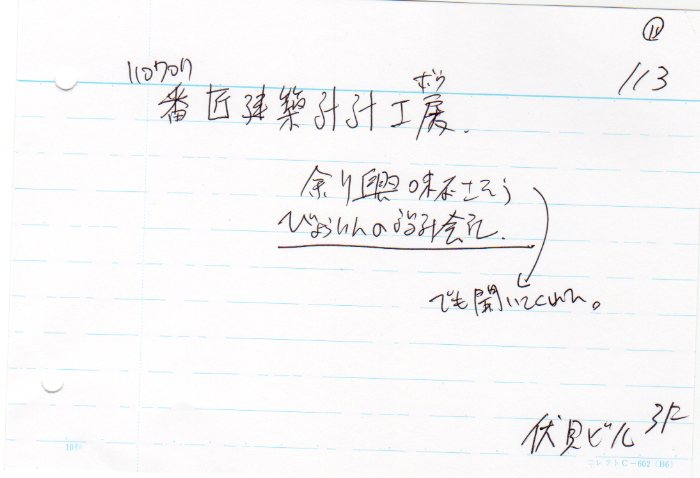 ⑭
113
ボウ
番匠建築計計工房.
余り興味なさそう
びょういんの設計会社.
でも聞いてくれた。
伏見ビル 3F
コレクト C-602 (B6)